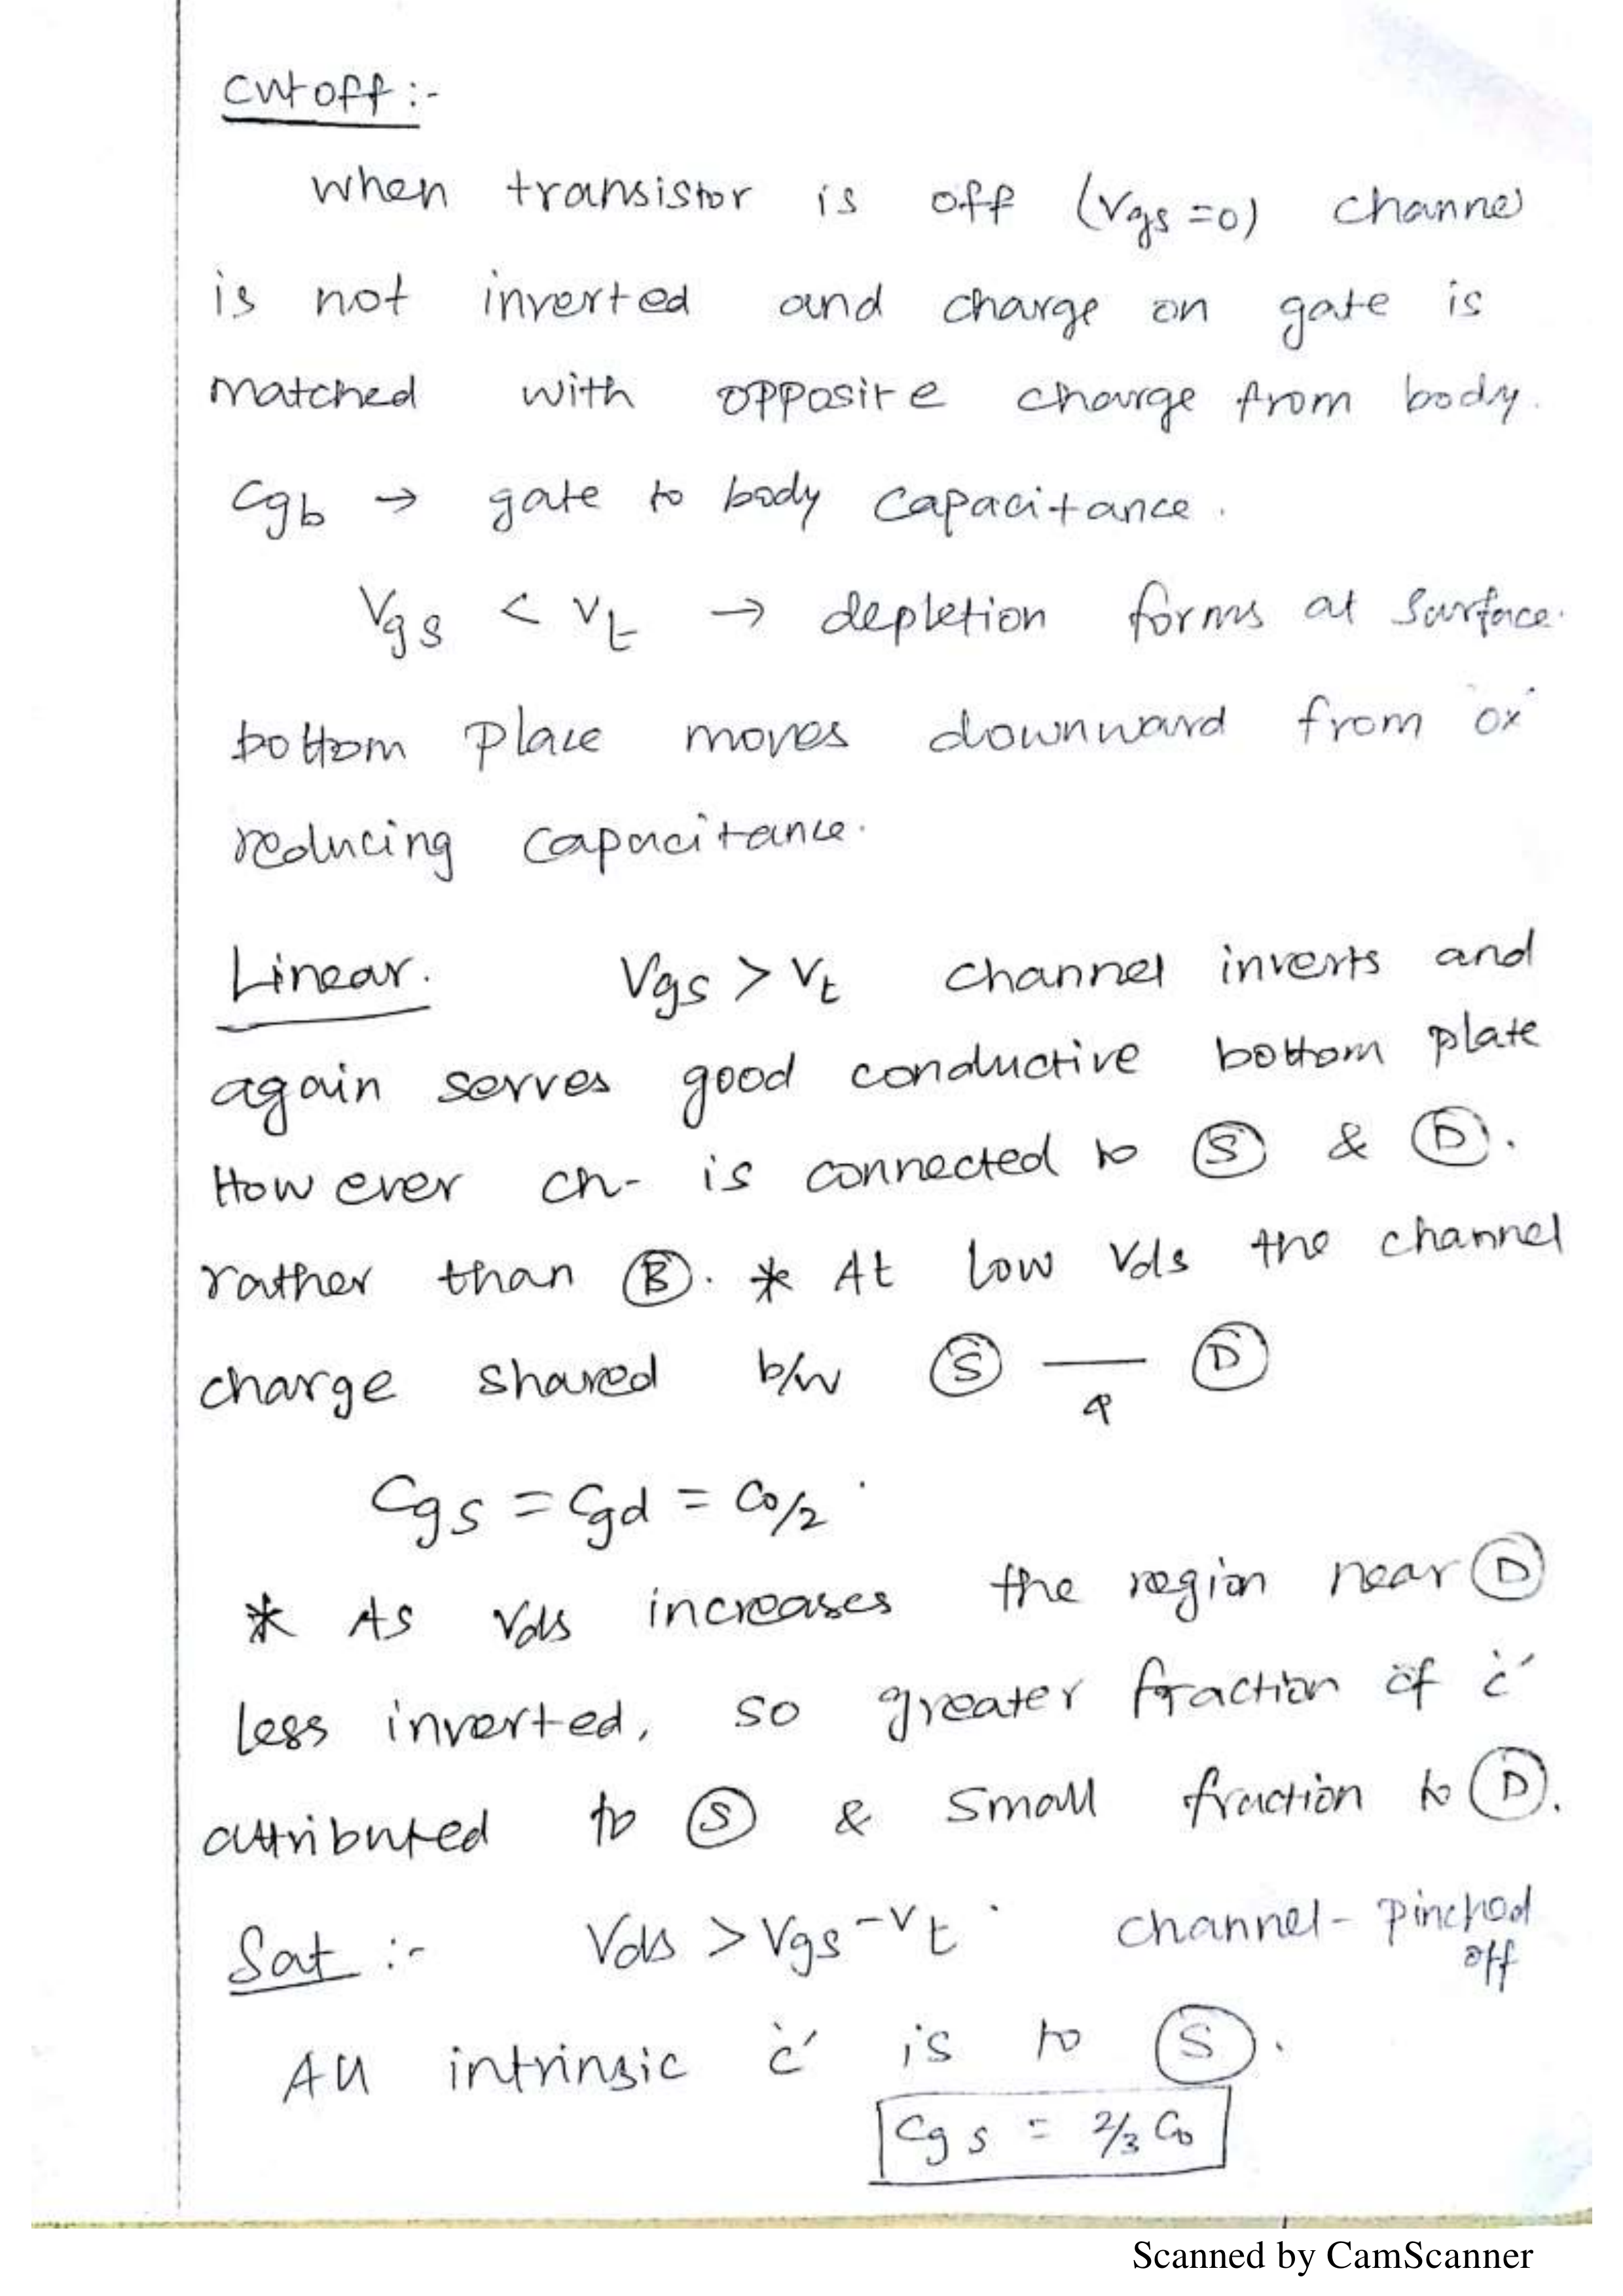 Cutoff :-
When transistor is off (Vgs = 0) channel
is not inverted and charge on gate is
matched with opposite charge from body.
Cgb → gate to body capacitance.
Vgs < Vt → depletion forms at surface.
bottom place moves downward from 'ox'
reducing capacitance.
Linear. Vgs > Vt channel inverts and
again serves good conductive bottom plate
However ch- is connected to (S) & (D).
rather than (B). * At low Vds the channel
charge shared b/w (S) — (D)
q
Cgs = Cgd = C0/2.
* As Vds increases the region near (D)
less inverted, so greater fraction of 'c'
attributed to (S) & small fraction to (D).
Sat :- Vds > Vgs - Vt. channel - pinched
off
All intrinsic 'c' is to (S).
Cgs = 2/3 C0
Scanned by CamScanner